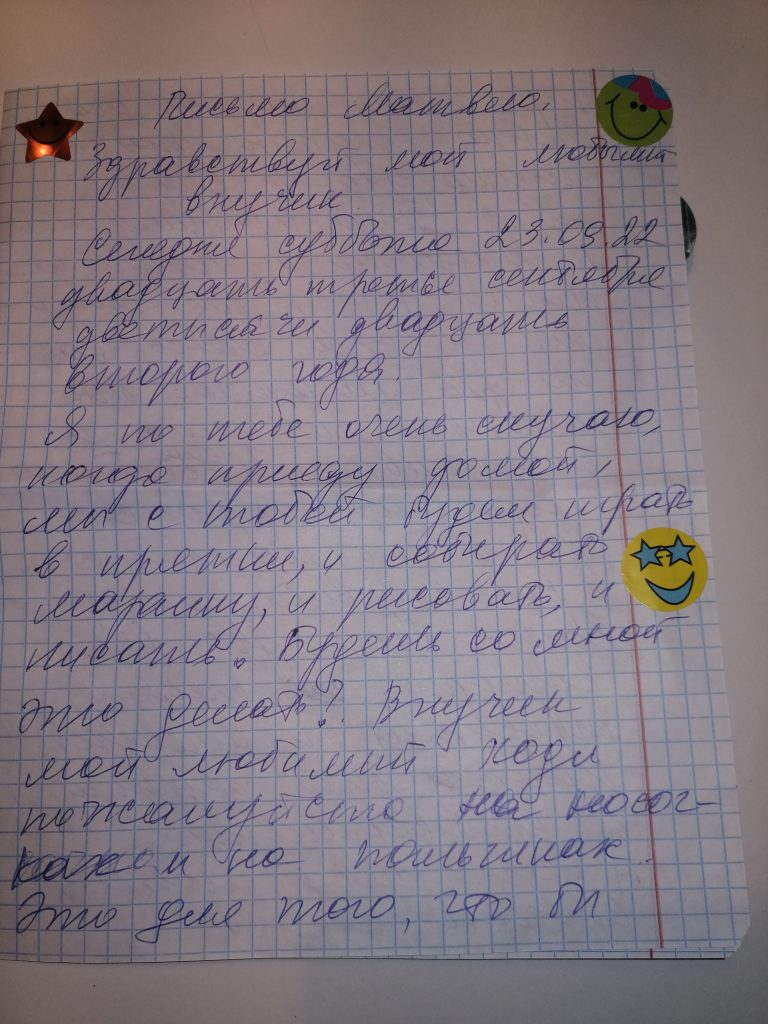 Письмо Матвею.
Здравствуй мой любимый
внучик
Сегодня суббота 23.09.22
двадцать третье сентября
дветысячи двадцать
второго года.
Я по тебе очень скучаю,
когда приеду домой,
мы с тобой будем играть
в прятки, и собирать
марашку, и рисовать, и
писать. Будешь со мной
это делать? Внучек
мой любимый ходи
пожалуйста на носоч-
ках и на пальчиках.
Это для того, что бы